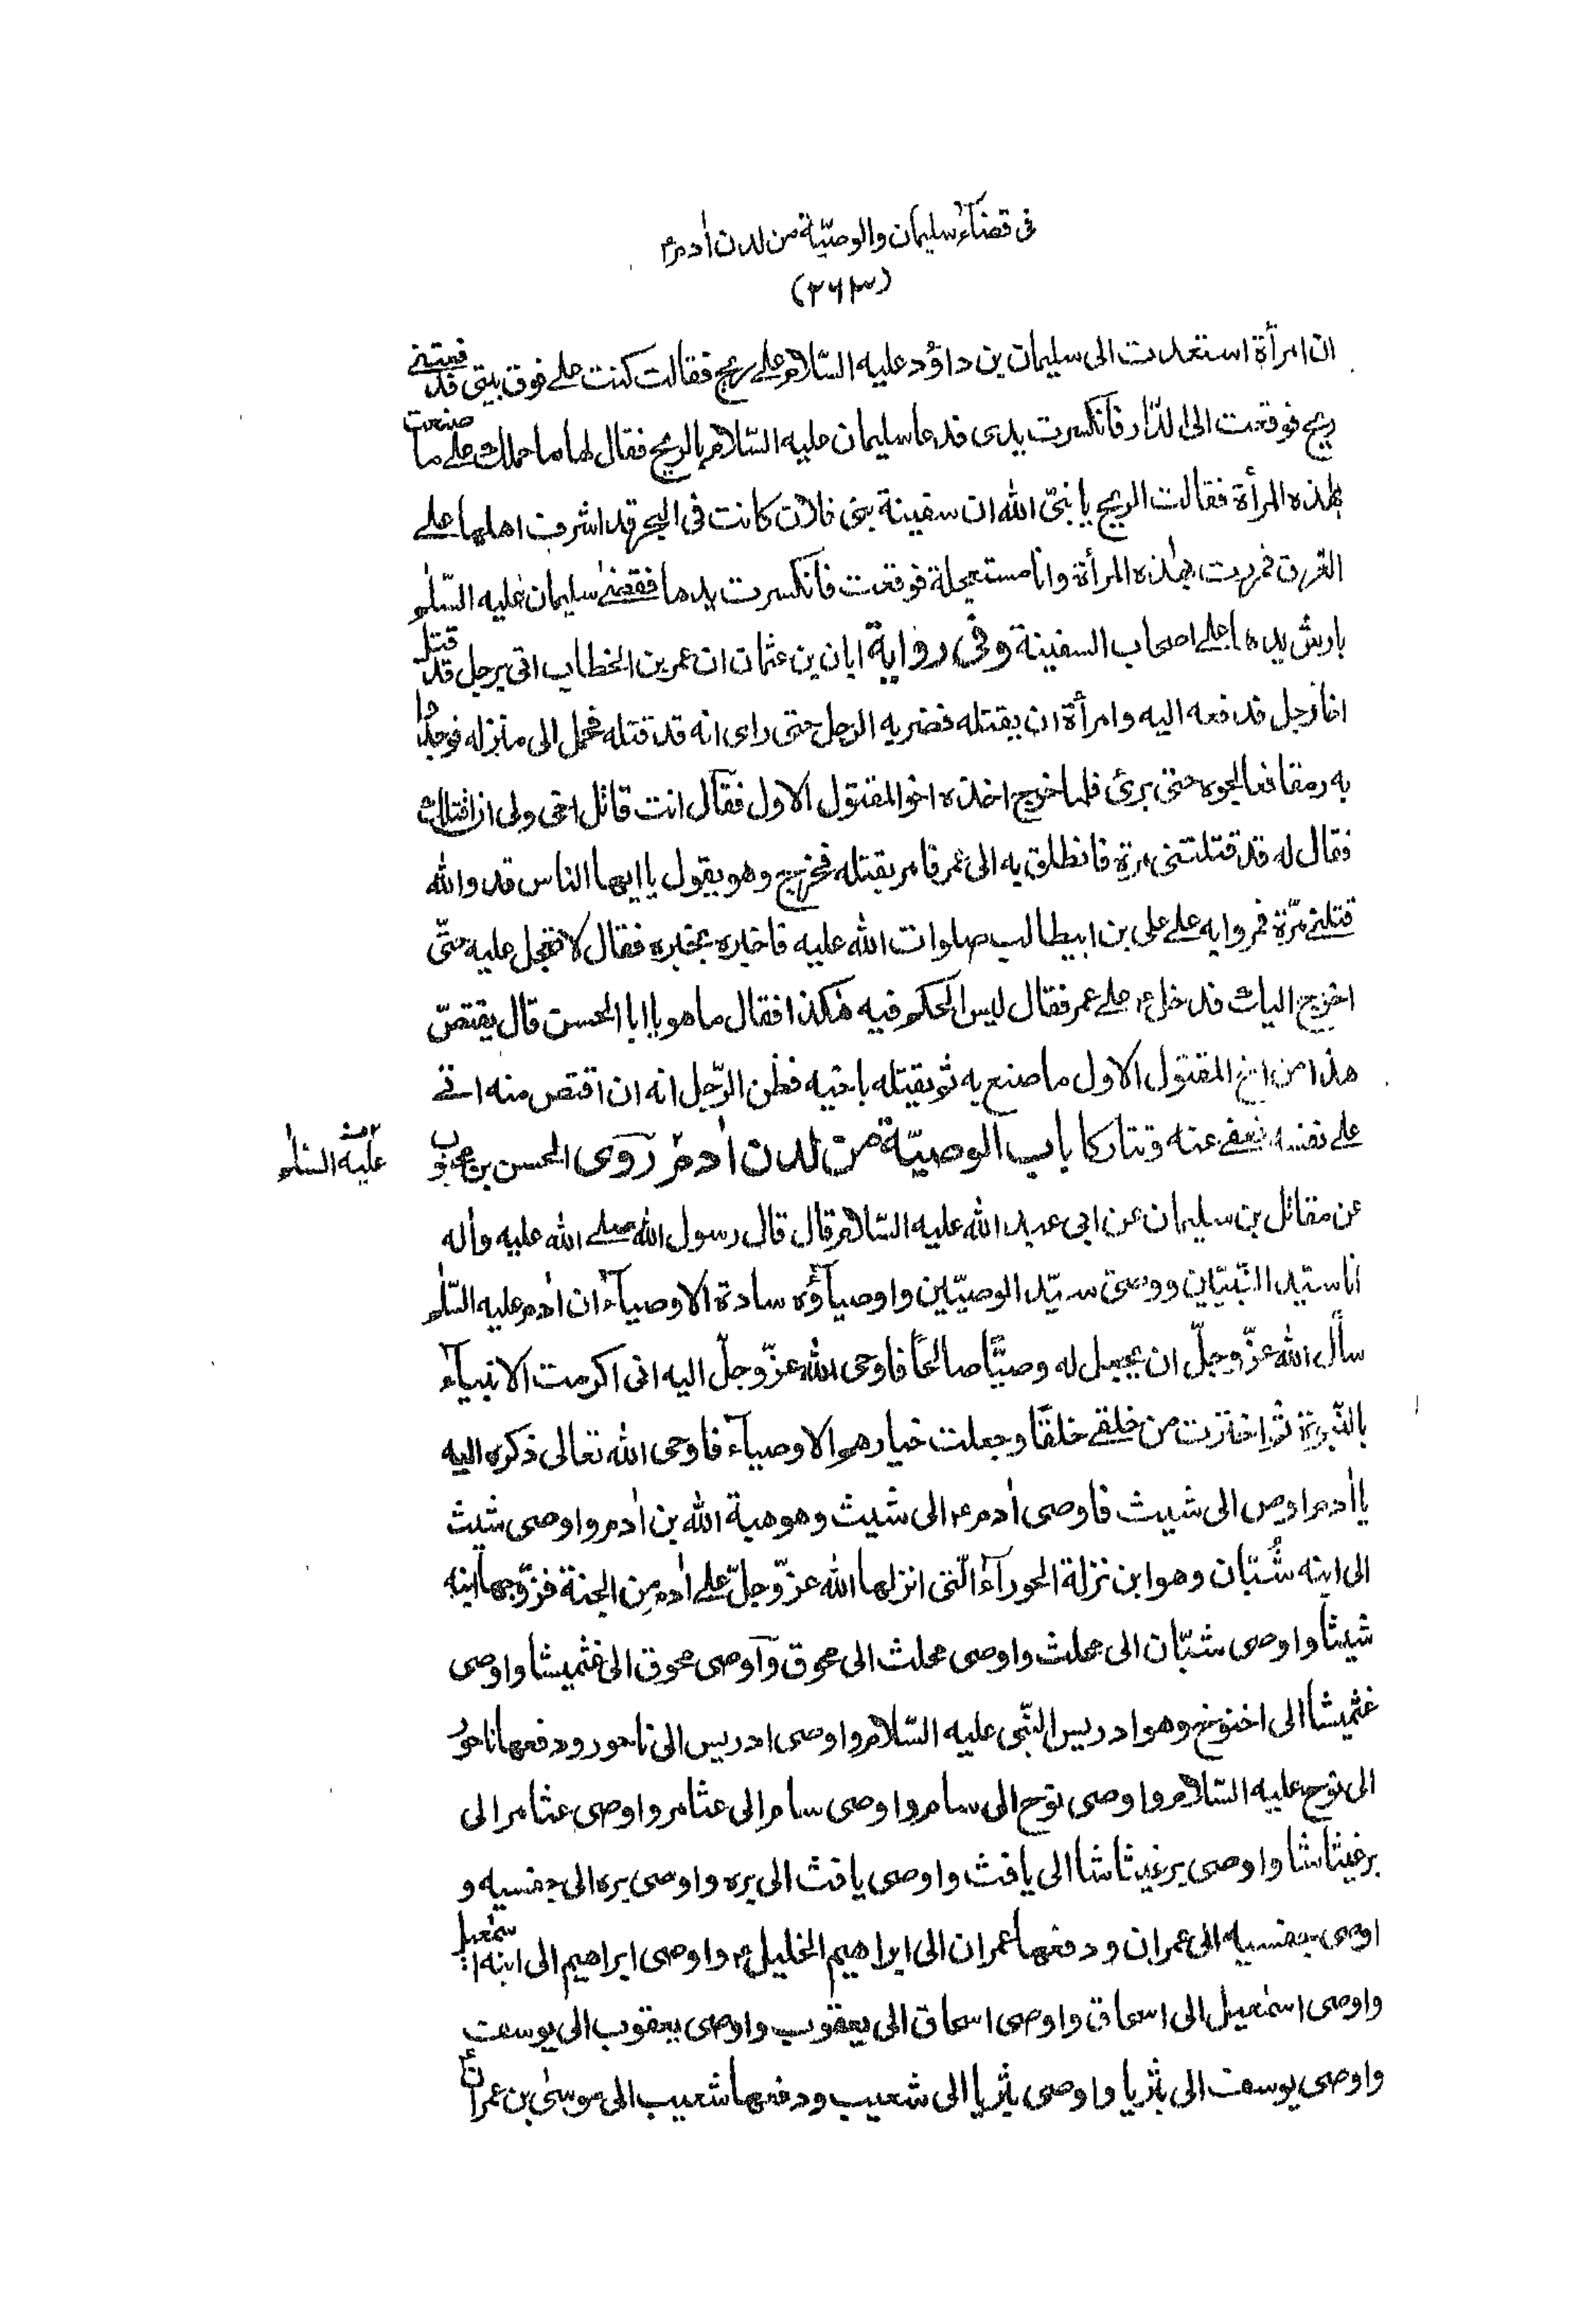 فى قضآء سليمان والوصيّة من لدن اٰدم ع
(٣٦٣)
ان امرأة استعدت الى سليمان بن داؤد عليه السّلام على ريح فقالت كنت على فوق بيتى فدفعتنى
ريح فوقعت الى الدّار فانكسرت يدى فدعا سليمان عليه السّلام بالريح فقال لها ما حملك على ما صنعت
بهٰذه المرأة فقالت الريح يا نبىّ الله ان سفينة بنى فلان كانت فى البحر قد اشرف اهلها على
الغرق فمررت بهٰذه المرأة وانا مستعجلة فوقعت فانكسرت يدها فقضىٰ سليمان عليه السّلٰم
بارش يدها على اصحاب السفينة وفى رواية ابان بن عثمان ان عمر بن الخطاب اتى برجل قد قتل
اخا رجل فدفعه اليه وامرأة ان يقتله فضربه الرجل حتى راى انه قد قتله فحمل الى منزله فوجدوا
به رمقا فعالجوه حتى برئ فلما خرج اخذه اخو المقتول الاول فقال انت قاتل اخى ولى ان اقتلك
فقال له قد قتلتنى مرة فانطلق به الى عمر فامر بقتله فخرج وهو يقول يا ايها الناس قد والله
قتلنى مرّة فمروا به على على بن ابيطالب صلوات الله عليه فاخبره بخبره فقال لا تعجل عليه حتّى
اخرج اليك فدخل ع على عمر فقال ليس الحكم فيه هٰكذا فقال ما هو يا ابا الحسن قال يقتصّ
هذا من اخ المقتول الاول ما صنع به ثم يقتله باخيه فظن الرّجل انه ان اقتص منه اتى
على نفسه فعفى عنه وتتاركا باب الوصيّة من لدن اٰدم روى الحسن بن محبوب
عليه السّلٰم
عن مقاتل بن سليمان عن ابى عبد الله عليه السّلام قال قال رسول الله صلى الله عليه واٰله
انا سيّد النّبيّين ووصيّى سيّد الوصيّين واوصيآؤه سادة الاوصيآء ان اٰدم عليه السّلٰم
سأل الله عزّ وجلّ ان يجعل له وصيًّا صالحًا فاوحى الله عزّ وجلّ اليه انى اكرمت الانبيآء
بالنّبوة ثم اخترت من خلقى خلقًا وجعلت خيارهم الاوصيآء فاوحى الله تعالى ذكره اليه
يا اٰدم اوص الى شيث فاوصى اٰدم ع الى شيث وهو هبة الله بن اٰدم واوصى شيث
الى ابنه شُبّان وهو ابن نزلة الحورآء الّتى انزلها الله عزّ وجلّ على اٰدم مِن الجنة فزوّجها ابنه
شيثًا واوصى شبّان الى محلث واوصى محلث الى محوق وآوصى محوق الى غثميشا واوصى
غثميشا الى اخنوخ وهو ادريس النّبى عليه السّلام واوصى ادريس الى ناحور ودفعها ناحور
الى نوح عليه السّلام واوصى نوح الى سام واوصى سام الى عثامر واوصى عثامر الى
برغيثاشا واوصى برغيثاشا الى يافث واوصى يافث الى بره واوصى بره الى جفسيه و
اوصى جفسيه الى عمران ودفعها عمران الى ابراهيم الخليل ع واوصى ابراهيم الى ابنه اسمٰعيل
واوصى اسمٰعيل الى اسحاق واوصى اسحاق الى يعقوب واوصى يعقوب الى يوسف
واوصى يوسف الى بثريا واوصى بثريا الى شعيب ودفعها شعيب الى موسىٰ بن عمران